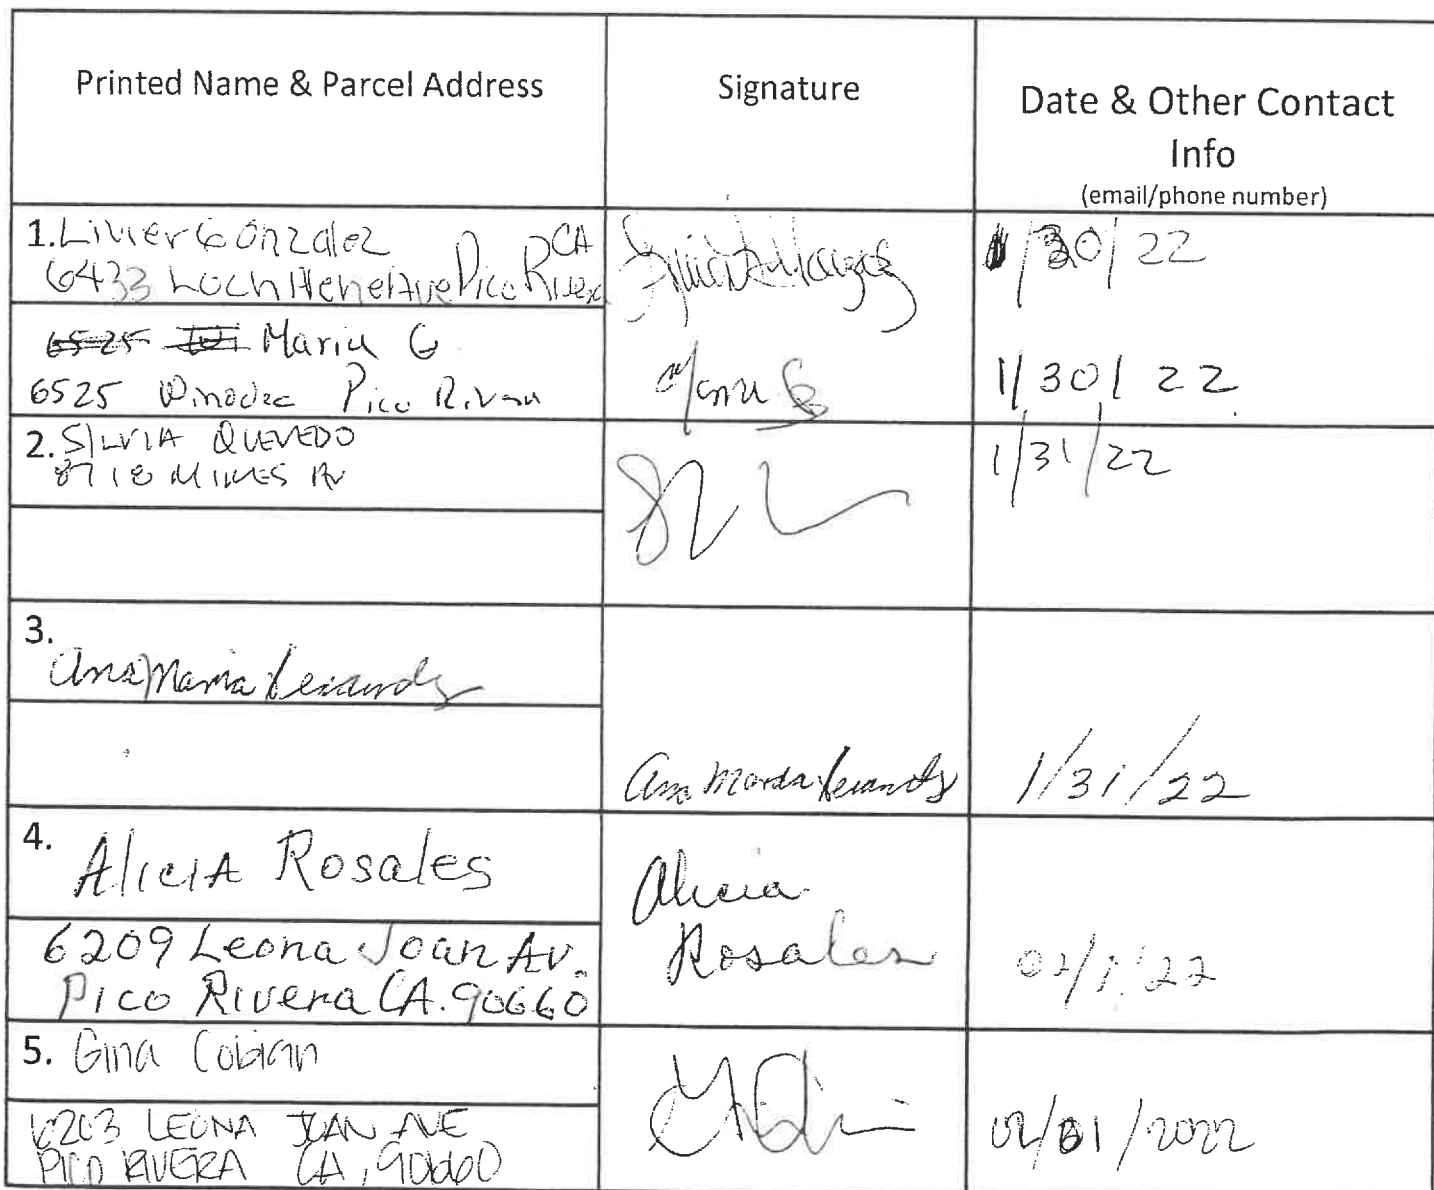 Printed Name & Parcel Address
Signature
Date & Other Contact
Info
(email/phone number)
1. Livier Gonzalez
6433 Loch Alene Ave Pico Rivera CA
1/30/22
6525 Maria G
6525 Pico Rivera
Maria G
1/30/22
2. SILVIA QUEVEDO
8718 MINES AV
1/31/22
3.
Ana Maria Fernandez
Ana Maria Fernandez
1/31/22
4.
Alicia Rosales
6209 Leona Joan Av.
Pico Rivera CA. 90660
Alicia
Rosales
02/1/22
5. Gina Cobian
6203 LEONA JOAN AVE
PICO RIVERA CA, 90660
02/01/2022